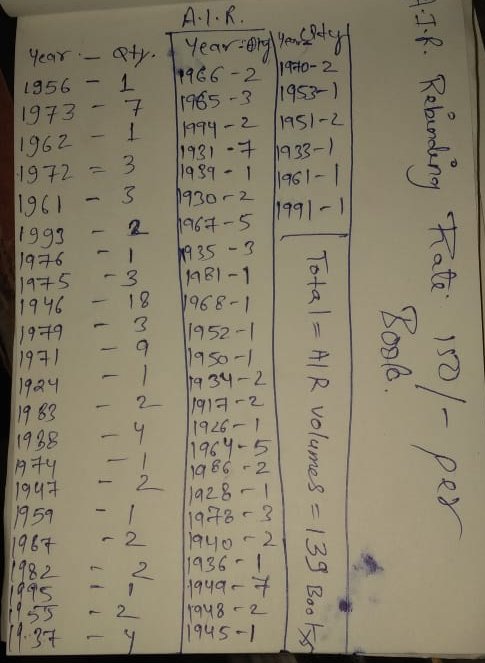 A.I.R.
Year - Qty.
1956 - 1
1973 - 7
1962 - 1
1972 - 3
1961 - 3
1993 - 2
1976 - 1
1975 - 3
1946 - 18
1979 - 3
1971 - 9
1924 - 1
1983 - 2
1938 - 4
1974 - 1
1947 - 2
1959 - 1
1987 - 2
1982 - 2
1995 - 1
1955 - 2
1937 - 4
Year - Qty
1966 - 2
1965 - 3
1994 - 2
1931 - 7
1939 - 1
1930 - 2
1967 - 5
1935 - 3
1981 - 1
1968 - 1
1952 - 1
1950 - 1
1934 - 2
1917 - 2
1926 - 1
1964 - 5
1986 - 2
1928 - 1
1978 - 3
1940 - 2
1936 - 1
1949 - 7
1948 - 2
1945 - 1
Year Qty
1970 - 2
1953 - 1
1951 - 2
1933 - 1
1961 - 1
1991 - 1
Total = AIR volumes = 139 Books
A.I.R. Rebinding Rate. 150/- per
Book.